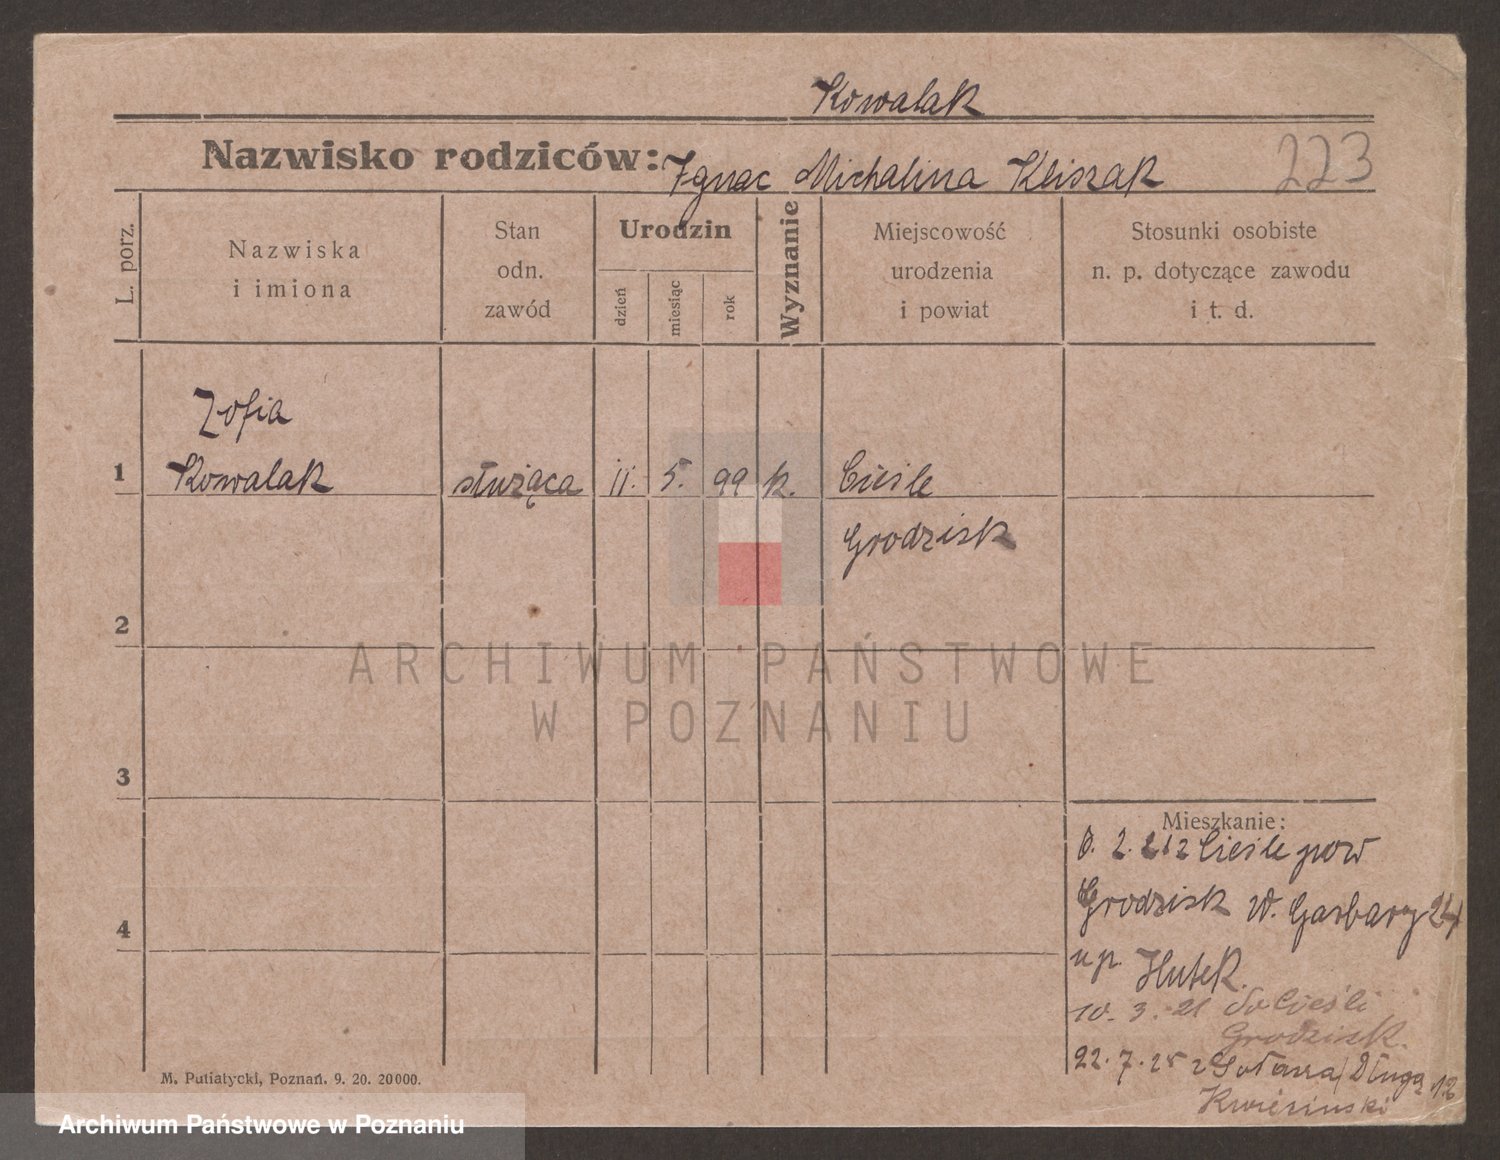 Kowalak
Nazwisko rodziców: Ignac Michalina Kliszak
223
L. porz.
Nazwiska
i imiona
Stan
odn.
zawód
Urodzin
dzień
miesiąc
rok
Wyznanie
Miejscowość
urodzenia
i powiat
Stosunki osobiste
n. p. dotyczące zawodu
i t. d.
Zofia
1 Kowalak służąca 11. 5. 99 k. Cieśle
Grodzisk
2
ARCHIWUM PAŃSTWOWE
W POZNANIU
3
Mieszkanie:
2. 21 z Cieśle pow
Grodzisk W. Garbary 24
4
up. Hutek.
10. 3. 21 do Cieśli
Grodzisk.
22. 7. 25 z Długa 12
Kwiesinski
M. Putiatycki, Poznań. 9. 20. 20000.
Archiwum Państwowe w Poznaniu